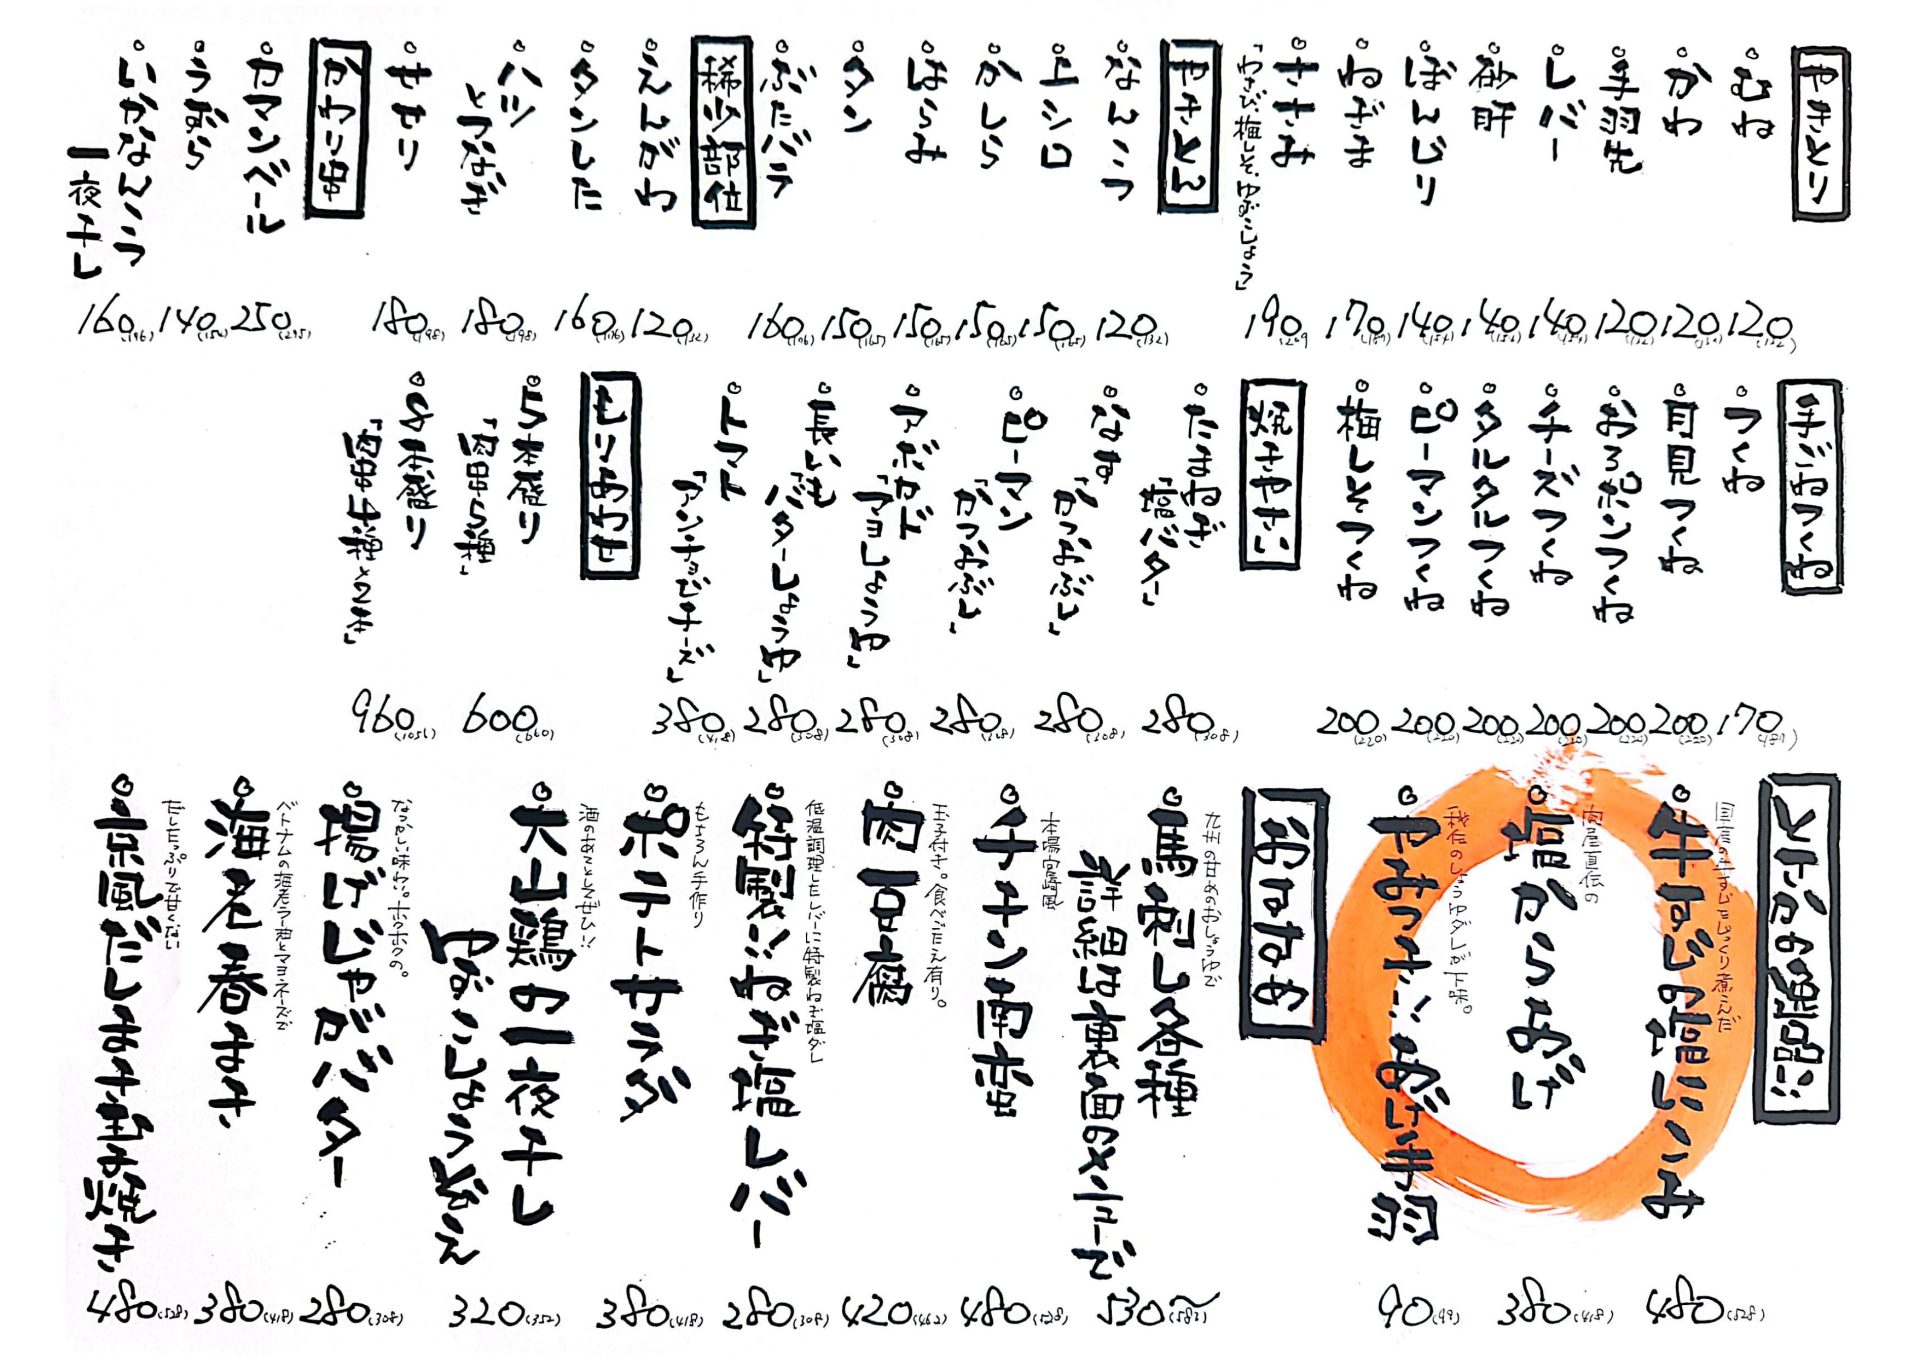 やきとり
むね
120(132)
かわ
120(132)
手羽先
120(132)
レバー
140(154)
砂肝
140(154)
ぼんじり
140(154)
ねぎま
170(187)
ささみ
「わさび、梅しそ、ゆずこしょう」
190(209
やきとん
なんこつ
120(132)
上シロ
150(165)
かしら
150(165)
はらみ
150(165)
タン
150(165)
ぶたバラ
160(176)
稀少部位
えんがわ
120(132)
タンした
160(176)
ハツ
とつなぎ
180(198)
せせり
180(198)
かわり串
カマンベール
250(275)
うずら
140(154)
いかなんこつ
一夜干し
160(176)
手ごねつくね
つくね
170(187)
月見つくね
200(220)
おろポンつくね
200(220)
チーズつくね
200(220)
タルタルつくね
200(220)
ピーマンつくね
200(220)
梅しそつくね
200(220)
焼きやさい
たまねぎ
「塩バター」
280(308)
なす
「かつおぶし」
280(308)
ピーマン
「かつおぶし」
280(308)
アボカド
「マヨしょうゆ」
280(308)
長いも
「バターしょうゆ」
280(308)
トマト
「アンチョビチーズ」
380(418)
もりあわせ
5本盛り
「肉串5種」
600(660)
8本盛り
「肉串4種×2本」
960(1056)
ときわの絶品!!
自慢の牛すじをじっくり煮こんだ
牛すじの塩にこみ
480(528)
肉屋直伝の
塩からあげ
380(418)
秘伝のしょうゆダレが下味。
やみつき!!あげ手羽
90(99)
おすすめ
九州の甘めのおしょうゆで
馬刺し各種
詳細は裏面のメニューで
530~(583)
本場宮崎風
チキン南蛮
480(528)
玉子付き。食べごたえ有り。
肉豆腐
420(462)
低温調理したレバーに特製ねぎ塩ダレ
特製!!ねぎ塩レバー
280(308)
もちろん手作り
ポテトサラダ
380(418)
酒のあてとしてぜひ!!
大山鶏の一夜干し
ゆずこしょう添え
320(352)
なつかしい味わい。ホクホクの。
揚げじゃがバター
280(308)
ベトナムの海老ラー油とマヨネーズで
海老春まき
380(418)
だしたっぷりで甘くない
京風だしまき卵焼き
480(528)